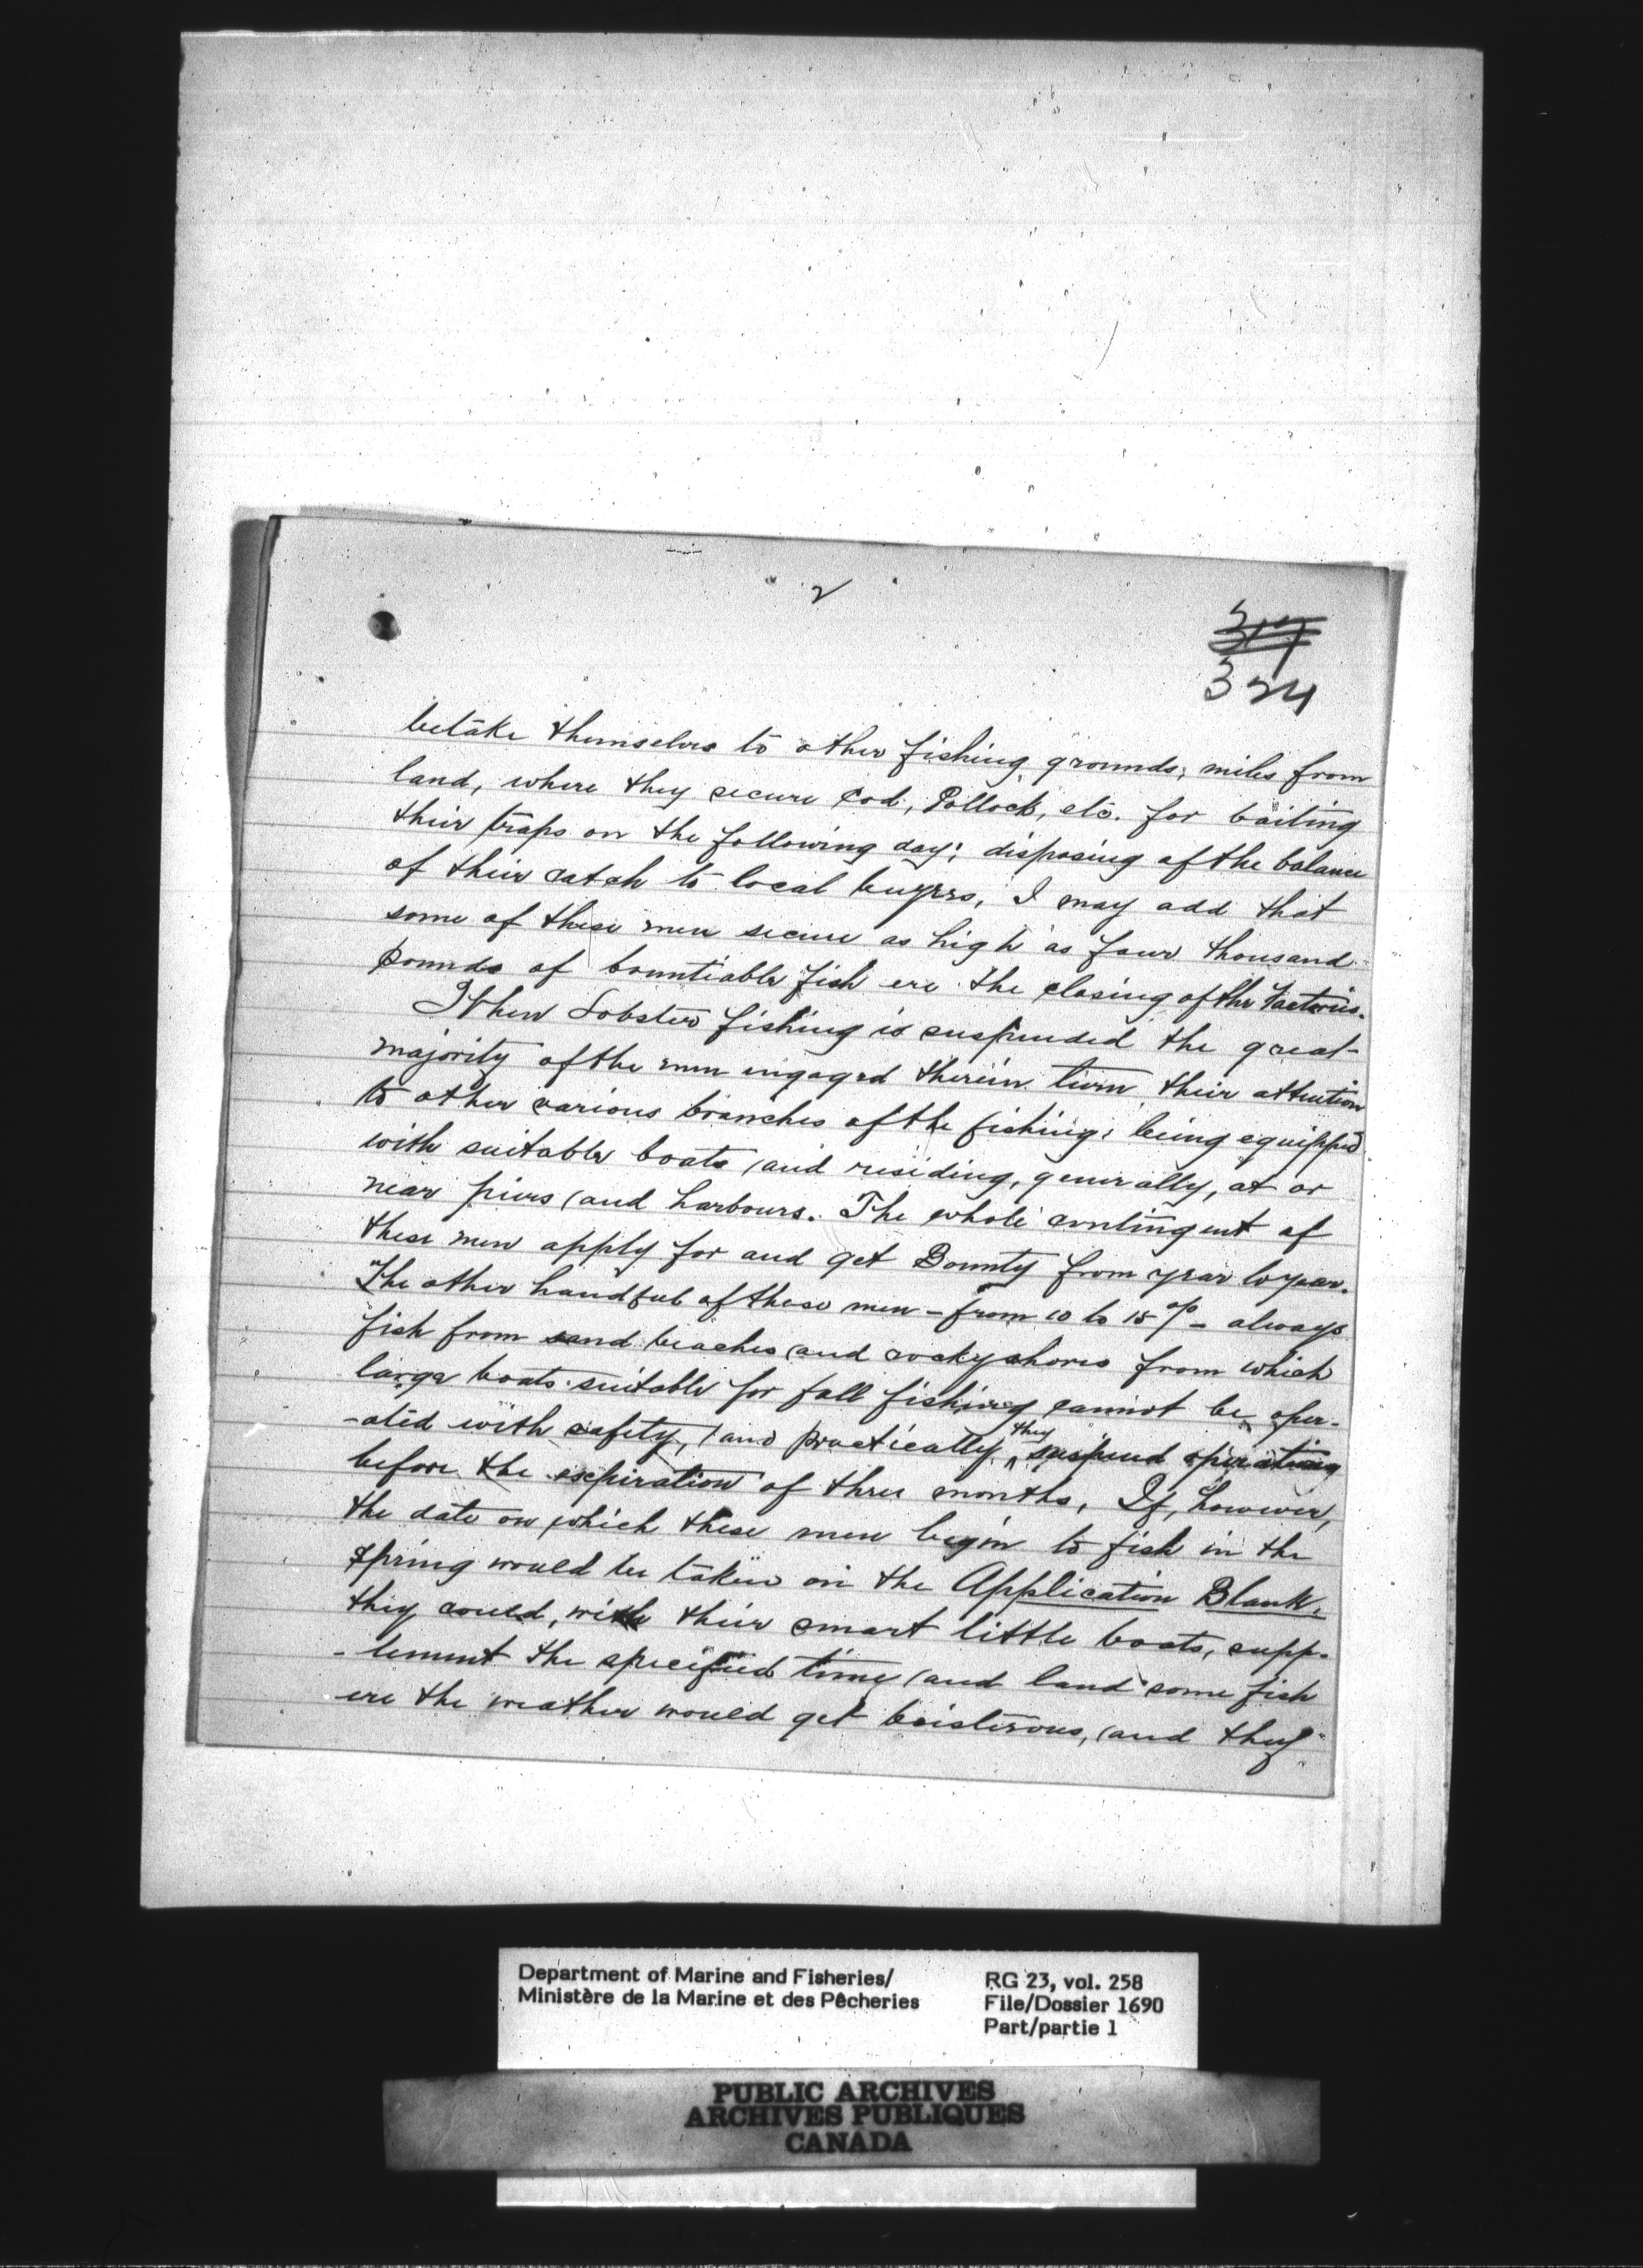 2
317
324
betake themselves to other fishing grounds, miles from
land, where they secure Cod, Pollock, etc. for baiting
their traps on the following day; disposing of the balance
of their catch to local buyers, I may add that
some of these men secure as high as four thousand
pounds of bountiable fish ere the closing of the factories.
When Lobster fishing is suspended the great
majority of the men engaged therein turn their attention
to other various branches of the fishing; being equipped
with suitable boats and residing, generally, at or
near piers and harbours. The whole contingent of
these men apply for and get Bounty from year to year.
The other handful of these men - from 10 to 15 % - always
fish from sand beaches and rocky shores from which
large boats suitable for fall fishing cannot be oper-
-ated with safety, and practically they suspend operations
before the expiration of three months, If, however,
the date on which these men begin to fish in the
Spring would be taken on the Application Blank,
they could, with their smart little boats, supp-
-lement the specified time and land some fish
ere the weather would get boisterous, and they
Department of Marine and Fisheries/
Ministère de la Marine et des Pêcheries
RG 23, vol. 258
File/Dossier 1690
Part/partie 1
PUBLIC ARCHIVES
ARCHIVES PUBLIQUES
CANADA